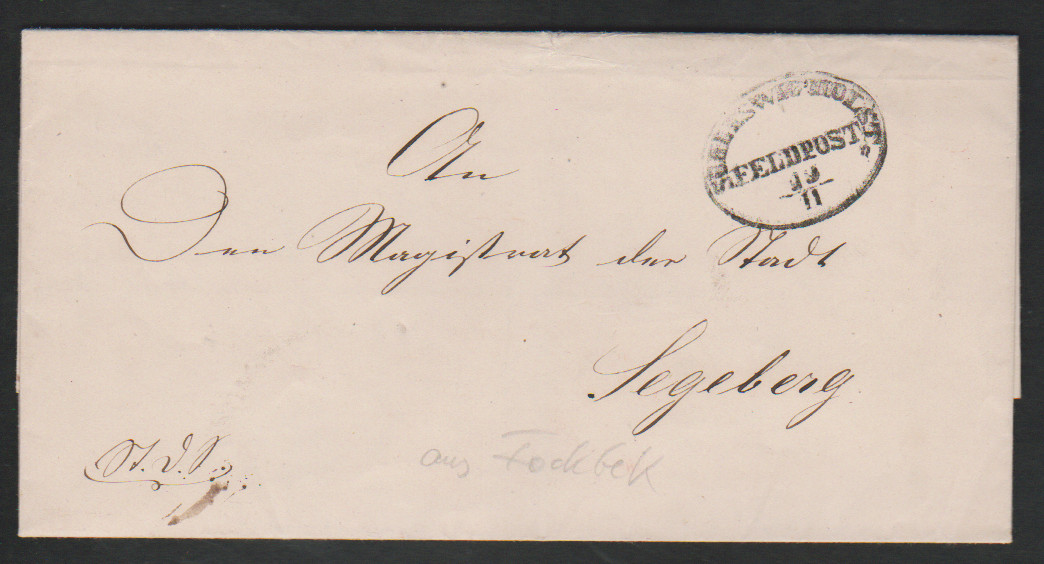 SCHLESWIG HOLST.
FELDPOST
11
An
Den Magistrat der Stadt
Segeberg.
St. D. S.
aus Fockbek